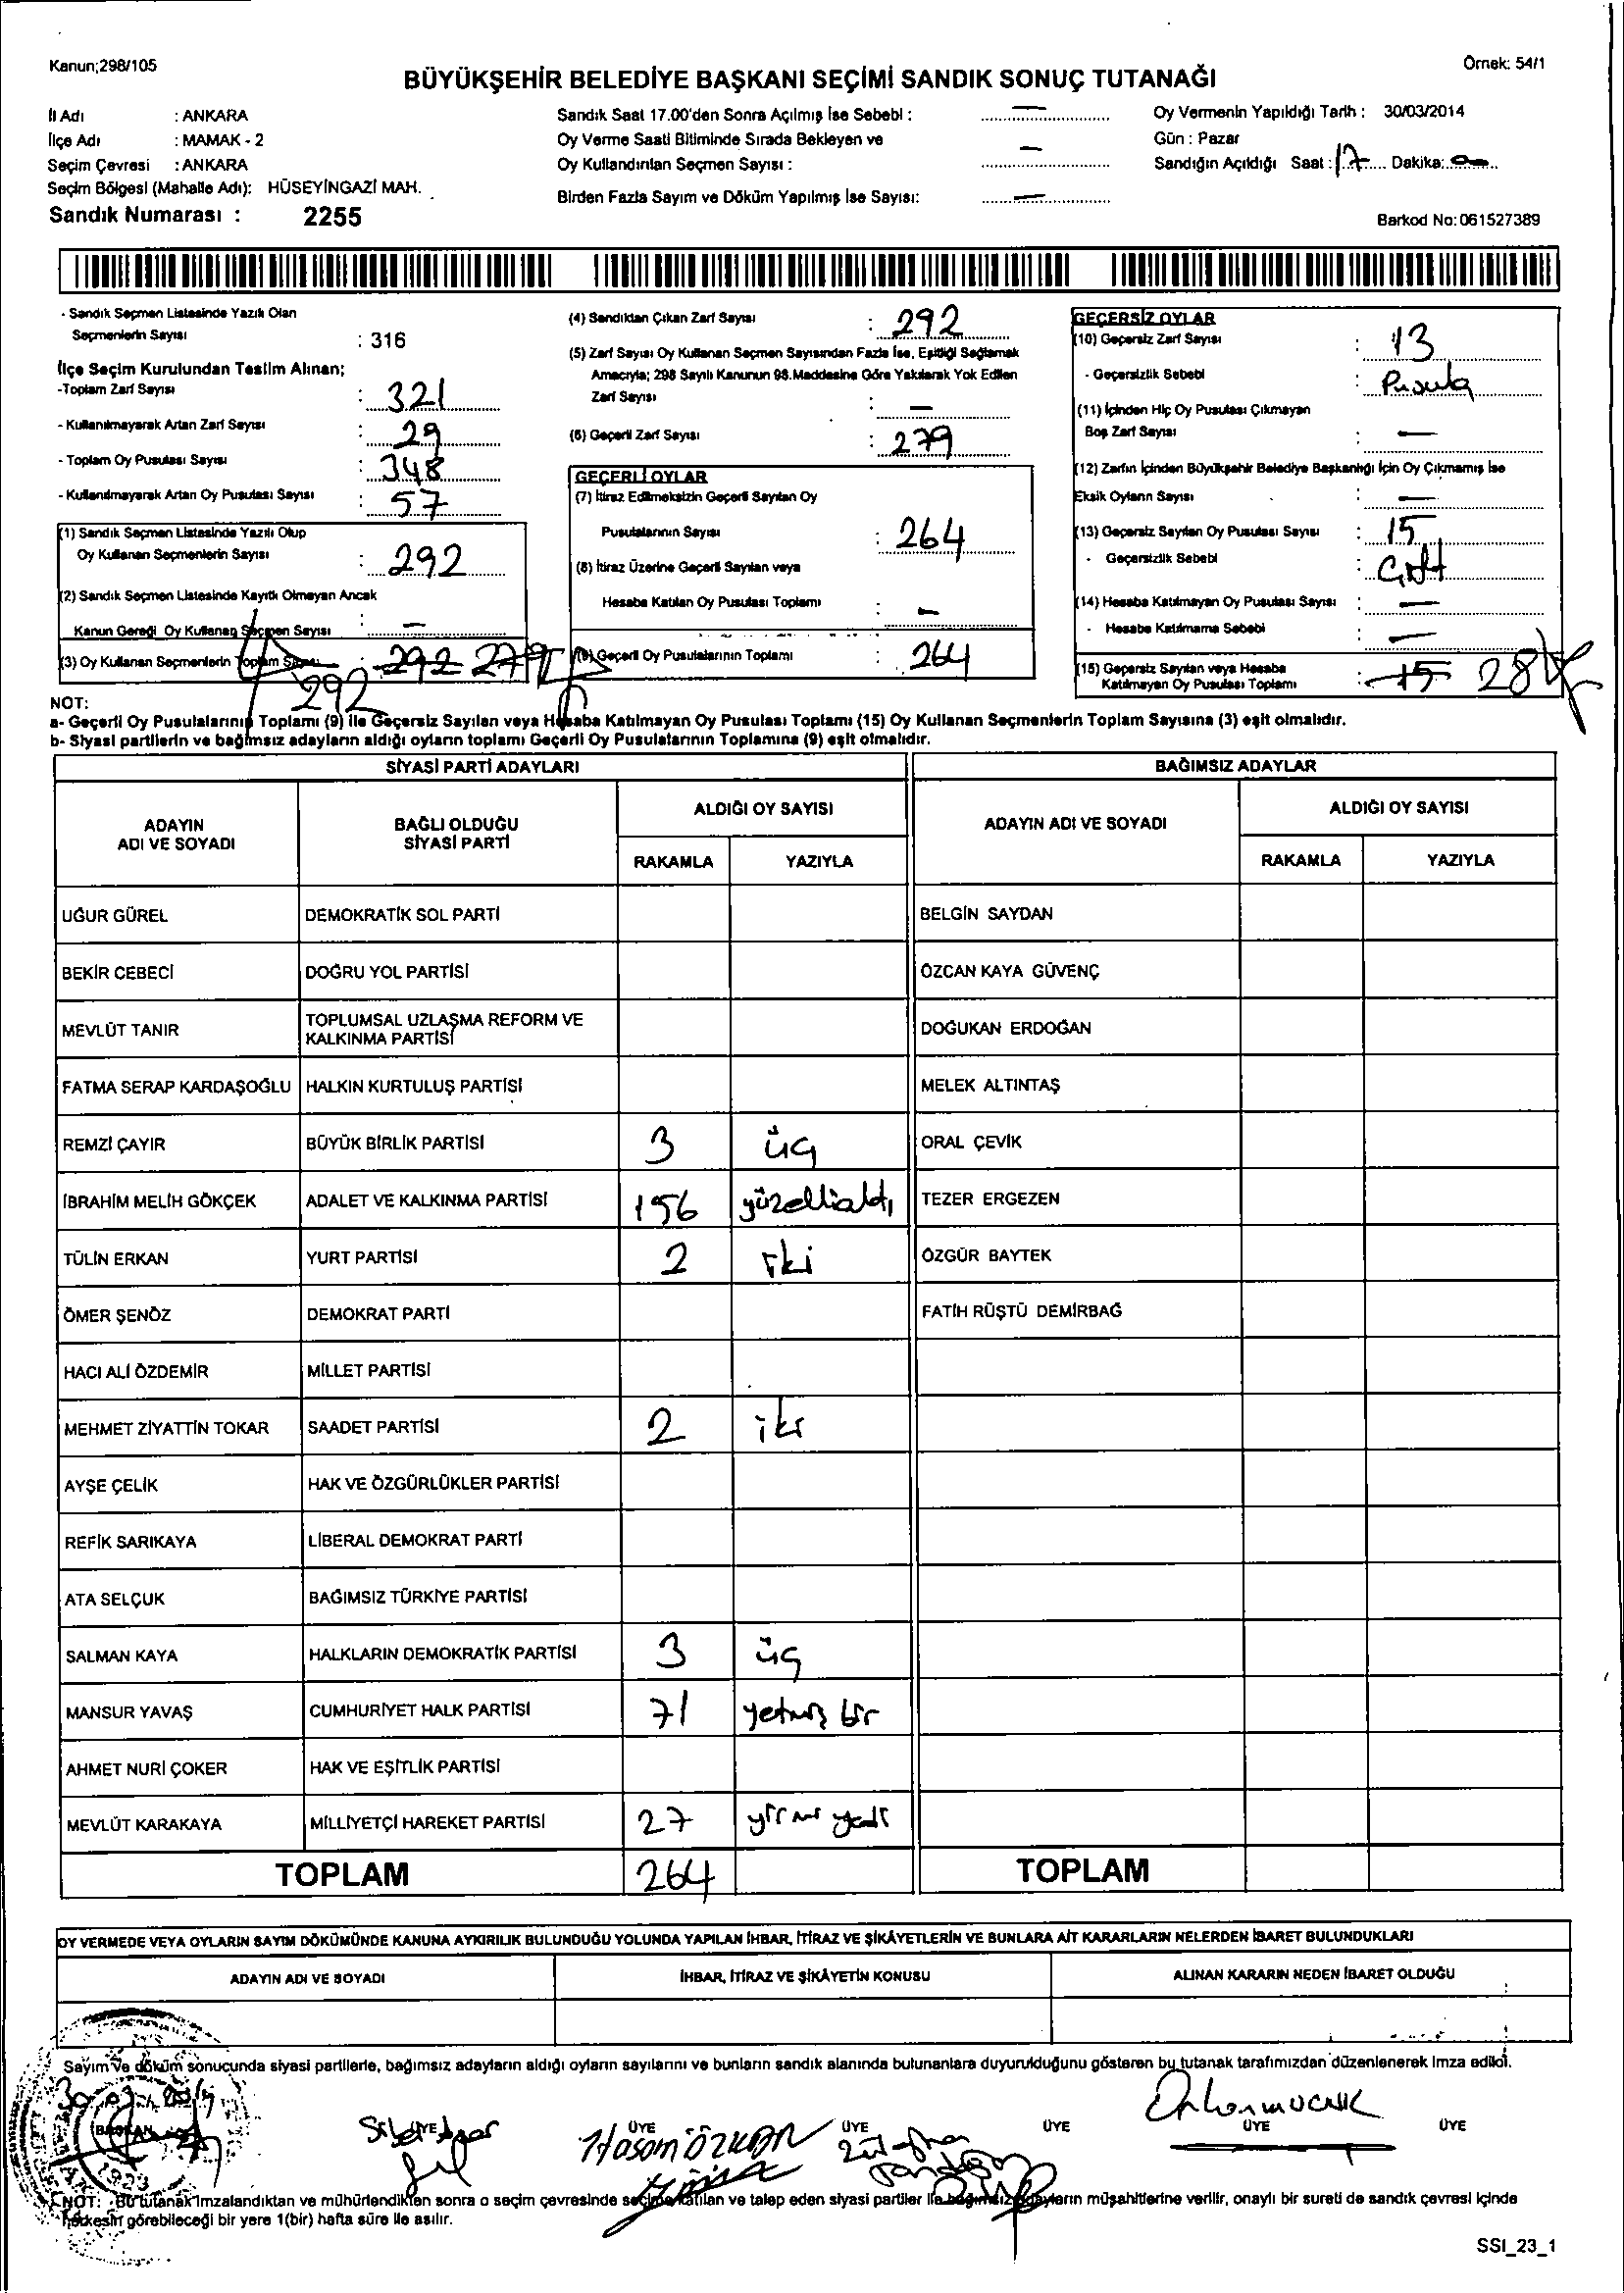 Kanun;298/105
Örnek: 54/1
BÜYÜKŞEHİR BELEDİYE BAŞKANI SEÇİMİ SANDIK SONUÇ TUTANAĞI
İl Adı : ANKARA
İlçe Adı : MAMAK - 2
Seçim Çevresi : ANKARA
Seçim Bölgesi (Mahalle Adı): HÜSEYİNGAZİ MAH.
Sandık Numarası : 2255
Sandık Saat 17.00'den Sonra Açılmış İse Sebebi : —
Oy Verme Saati Bitiminde Sırada Bekleyen ve
Oy Kullandırılan Seçmen Sayısı : —
Birden Fazla Sayım ve Döküm Yapılmış İse Sayısı: —
Oy Vermenin Yapıldığı Tarih : 30/03/2014
Gün : Pazar
Sandığın Açıldığı Saat : 17 Dakika:
Barkod No: 061527389
- Sandık Seçmen Listesinde Yazılı Olan
Seçmenlerin Sayısı : 316
İlçe Seçim Kurulundan Teslim Alınan;
-Toplam Zarf Sayısı : 321
- Kullanılmayarak Artan Zarf Sayısı : 29
- Toplam Oy Pusulası Sayısı : 348
- Kullanılmayarak Artan Oy Pusulası Sayısı : 57
(1) Sandık Seçmen Listesinde Yazılı Olup
Oy Kullanan Seçmenlerin Sayısı : 292
(2) Sandık Seçmen Listesinde Kayıtlı Olmayan Ancak
Kanun Gereği Oy Kullanan Seçmen Sayısı : —
(3) Oy Kullanan Seçmenlerin Toplam Sayısı : 292 279
292
(4) Sandıktan Çıkan Zarf Sayısı : 292
(5) Zarf Sayısı Oy Kullanan Seçmen Sayısından Fazla İse, Eşitliği Sağlamak
Amacıyla; 298 Sayılı Kanunun 98.Maddesine Göre Yakılarak Yok Edilen
Zarf Sayısı : —
(6) Geçerli Zarf Sayısı : 279
GEÇERLİ OYLAR
(7) İtiraz Edilmeksizin Geçerli Sayılan Oy
Pusulalarının Sayısı : 264
(8) İtiraz Üzerine Geçerli Sayılan veya
Hesaba Katılan Oy Pusulası Toplamı : —
(9) Geçerli Oy Pusulalarının Toplamı : 264
GEÇERSİZ OYLAR
(10) Geçersiz Zarf Sayısı : 13
- Geçersizlik Sebebi : Pusula
(11) İçinden Hiç Oy Pusulası Çıkmayan
Boş Zarf Sayısı : —
(12) Zarfın İçinden Büyükşehir Belediye Başkanlığı İçin Oy Çıkmamış İse
Eksik Oyların Sayısı : —
(13) Geçersiz Sayılan Oy Pusulası Sayısı : 15
- Geçersizlik Sebebi : Çift
(14) Hesaba Katılmayan Oy Pusulası Sayısı : —
- Hesaba Katılmama Sebebi : —
(15) Geçersiz Sayılan veya Hesaba
Katılmayan Oy Pusulası Toplamı : 15 28
NOT:
a- Geçerli Oy Pusulalarının Toplamı (9) ile Geçersiz Sayılan veya Hesaba Katılmayan Oy Pusulası Toplamı (15) Oy Kullanan Seçmenlerin Toplam Sayısına (3) eşit olmalıdır.
b- Siyasi partilerin ve bağımsız adayların aldığı oyların toplamı Geçerli Oy Pusulalarının Toplamına (9) eşit olmalıdır.
SİYASİ PARTİ ADAYLARI BAĞIMSIZ ADAYLAR
ADAYIN ADI VE SOYADI BAĞLI OLDUĞU SİYASİ PARTİ ALDIĞI OY SAYISI ADAYIN ADI VE SOYADI ALDIĞI OY SAYISI
RAKAMLA YAZIYLA RAKAMLA YAZIYLA
UĞUR GÜREL DEMOKRATİK SOL PARTİ BELGİN SAYDAN
BEKİR CEBECİ DOĞRU YOL PARTİSİ ÖZCAN KAYA GÜVENÇ
MEVLÜT TANIR TOPLUMSAL UZLAŞMA REFORM VE KALKINMA PARTİSİ DOĞUKAN ERDOĞAN
FATMA SERAP KARDAŞOĞLU HALKIN KURTULUŞ PARTİSİ MELEK ALTINTAŞ
REMZİ ÇAYIR BÜYÜK BİRLİK PARTİSİ 3 üç ORAL ÇEVİK
İBRAHİM MELİH GÖKÇEK ADALET VE KALKINMA PARTİSİ 156 yüzellialtı TEZER ERGEZEN
TÜLİN ERKAN YURT PARTİSİ 2 iki ÖZGÜR BAYTEK
ÖMER ŞENÖZ DEMOKRAT PARTİ FATİH RÜŞTÜ DEMİRBAĞ
HACI ALİ ÖZDEMİR MİLLET PARTİSİ
MEHMET ZİYATTİN TOKAR SAADET PARTİSİ 2 iki
AYŞE ÇELİK HAK VE ÖZGÜRLÜKLER PARTİSİ
REFİK SARIKAYA LİBERAL DEMOKRAT PARTİ
ATA SELÇUK BAĞIMSIZ TÜRKİYE PARTİSİ
SALMAN KAYA HALKLARIN DEMOKRATİK PARTİSİ 3 üç
MANSUR YAVAŞ CUMHURİYET HALK PARTİSİ 71 yetmiş bir
AHMET NURİ ÇOKER HAK VE EŞİTLİK PARTİSİ
MEVLÜT KARAKAYA MİLLİYETÇİ HAREKET PARTİSİ 27 yirmi yedi
TOPLAM 264 TOPLAM
OY VERMEDE VEYA OYLARIN SAYIM DÖKÜMÜNDE KANUNA AYKIRILIK BULUNDUĞU YOLUNDA YAPILAN İHBAR, İTİRAZ VE ŞİKÂYETLERİN VE BUNLARA AİT KARARLARIN NELERDEN İBARET BULUNDUKLARI
ADAYIN ADI VE SOYADI İHBAR, İTİRAZ VE ŞİKÂYETİN KONUSU ALINAN KARARIN NEDEN İBARET OLDUĞU
Sayım ve döküm sonucunda siyasi partilerle, bağımsız adayların aldığı oyların sayılarını ve bunların sandık alanında bulunanlara duyurulduğunu gösteren bu tutanak tarafımızdan düzenlenerek imza edildi.
30.03.2014
BAŞKAN ÜYE ÜYE ÜYE ÜYE ÜYE ÜYE
Hasan ÖZKAN
NOT: Bu tutanak imzalandıktan ve mühürlendikten sonra o seçim çevresinde seçime katılan ve talep eden siyasi partiler ile bağımsız adayların müşahitlerine verilir, onaylı bir sureti de sandık çevresi içinde
herkesin görebileceği bir yere 1(bir) hafta süre ile asılır.
SSI_23_1